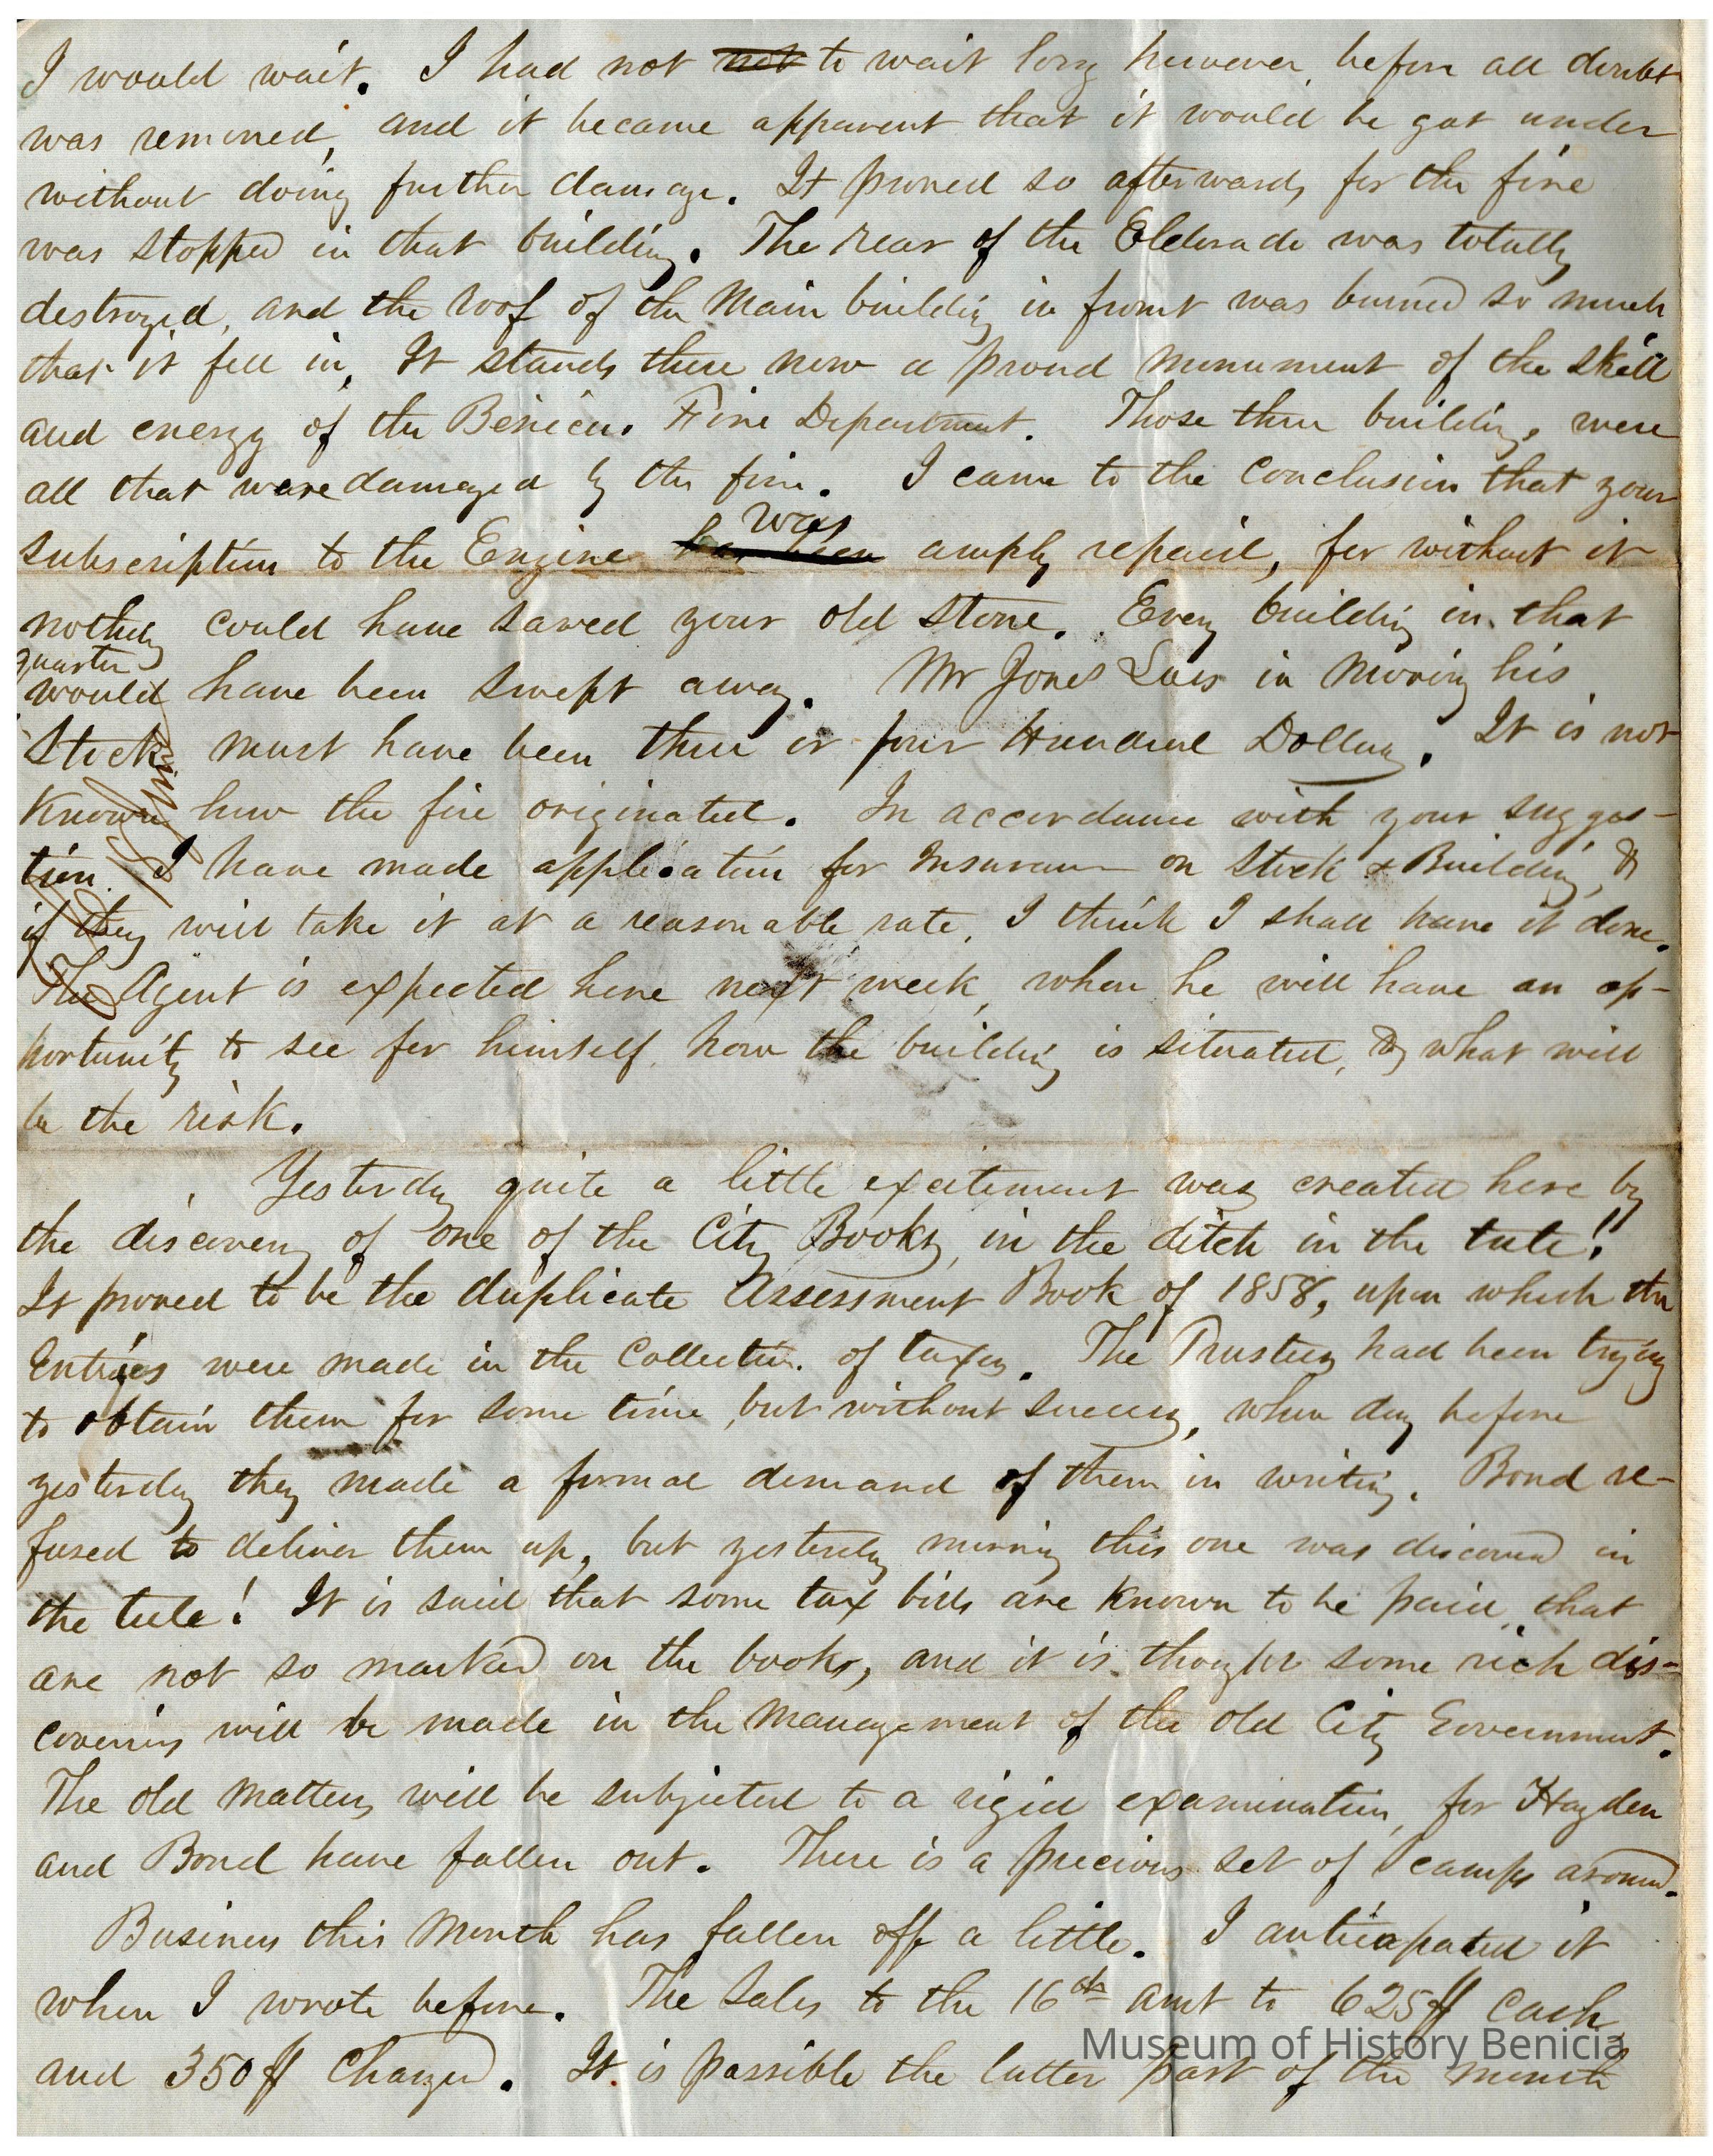 I would wait. I had not not to wait long however before all doubt
was removed, and it became apparent that it would be got under
without doing further damage. It proved so afterwards, for the fire
was stopped in that building. The rear of the Eldorado was totally
destroyed, and the roof of the Main building in front was burned so much
that it fell in. It stands there now a proud monument of the skill
and energy of the Benicia Fire Department. Those three buildings were
all that were damaged by the fire. I came to the conclusion that your
was
subscription to the Engine has been amply repaid, for without it
nothing could have saved your old store. Every building in that
quarter
would have been swept away. Mr Jones Loss in moving his
Stock must have been three or four Hundred Dollars. It is not
Known how the fire originated. In accordance with your sugges-
tion I have made application for Insurance on Stock & Building, &
if they will take it at a reasonable rate, I think I shall have it done.
The Agent is expected here next week, when he will have an op-
portunity to see for himself how the building is situated, & what will
be the risk.
Yesterday quite a little excitement was created here by
the discovery of one of the City Books, in the ditch in the tule!
It proved to be the duplicate Assessment Book of 1858, upon which the
Entries were made in the Collection of taxes. The Trustees had been trying
to obtain them for some time, but without success, when day before
yesterday they made a formal demand of them in writing. Bond re-
fused to deliver them up, but yesterday morning this one was discovered in
the tule! It is said that some tax bills are Known to be paid, that
are not so marked on the books, and it is thought some rich dis-
coveries will be made in the Management of the old City Government.
The old Matters will be subjected to a rigid examination, for Hayden
and Bond have fallen out. There is a precious set of Scamps around.
Business this Month has fallen off a little. I anticipated it
when I wrote before. The Sales to the 16th amt to 625ff Cash,
and 350ff Charged. It is possible the latter part of the month
Museum of History Benicia